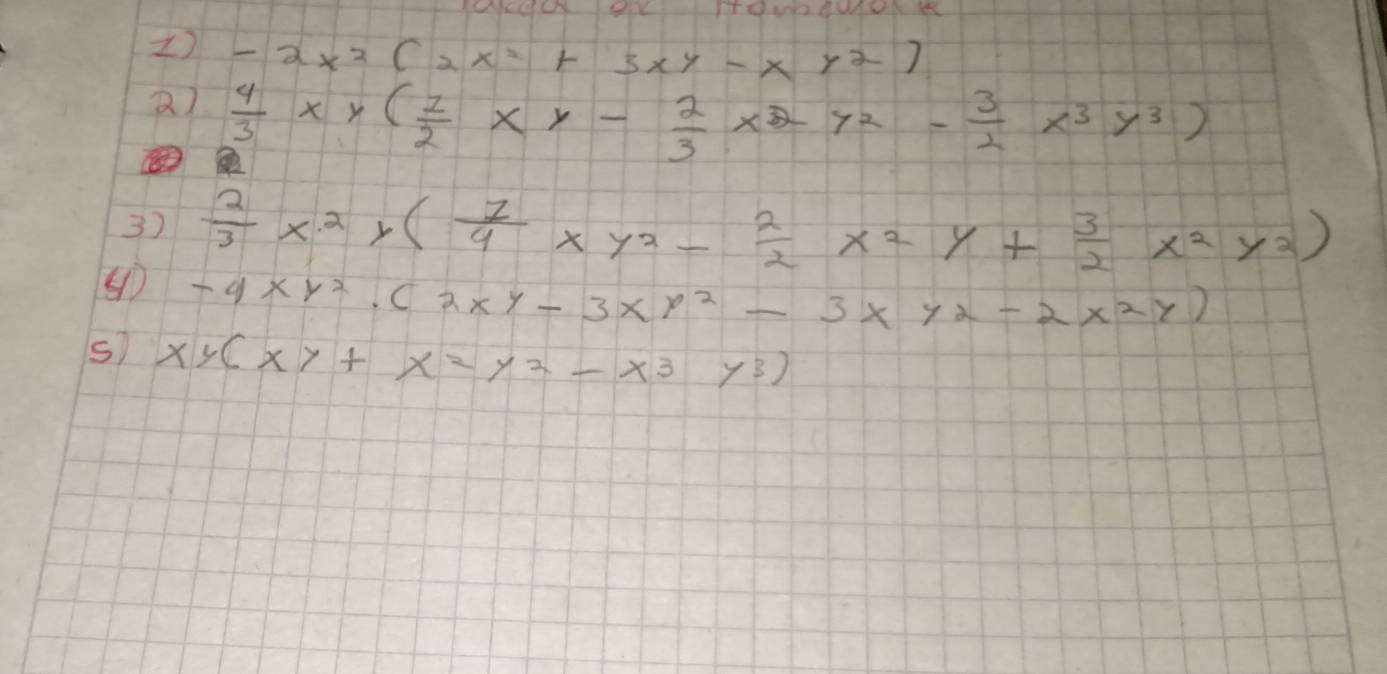 Tarea or Homework
1) - 2x² (2x² + 3xy - x y²)
2) 4/3 x y (7/2 x y - 2/3 x² y² - 3/2 x³ y³)
3) 2/3 x² y (7/4 x y² - 2/2 x² y + 3/2 x² y²)
4) - 4xy² . (2xy - 3xy² - 3x y² - 2x²y)
5) xy(xy + x² y² - x³ y³)